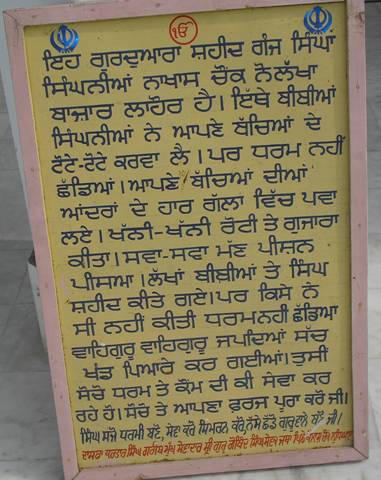 ੴ
ਇਹ ਗੁਰਦੁਆਰਾ ਸ਼ਹੀਦ ਗੰਜ ਸਿੰਘਾ
ਸਿੰਘਨੀਆਂ ਨਾਖਾਸ ਚੌਂਕ ਨੌਲੱਖਾ
ਬਾਜ਼ਾਰ ਲਾਹੌਰ ਹੈ। ਇੱਥੇ ਬੀਬੀਆਂ
ਸਿੰਘਨੀਆਂ ਨੇ ਆਪਣੇ ਬੱਚਿਆਂ ਦੇ
ਟੋਟੇ-ਟੋਟੇ ਕਰਵਾ ਲੈ। ਪਰ ਧਰਮ ਨਹੀਂ
ਛੱਡਿਆਂ। ਆਪਣੇ ਬੱਚਿਆਂ ਦੀਆਂ
ਆਂਦਰਾਂ ਦੇ ਹਾਰ ਗੱਲਾ ਵਿੱਚ ਪਵਾ
ਲਏ। ਖੱਨੀ-ਖੱਨੀ ਰੋਟੀ ਤੇ ਗੁਜਾਰਾ
ਕੀਤਾ। ਸਵਾ-ਸਵਾ ਮੱਣ ਪੀਸ਼ਨ
ਪੀਸਆ। ਲੱਖਾਂ ਬੀਬੀਆਂ ਤੇ ਸਿੰਘ
ਸ਼ਹੀਦ ਕੀਤੇ ਗਏ। ਪਰ ਕਿਸੇ ਨੇ
ਸੀ ਨਹੀਂ ਕੀਤੀ ਧਰਮਨਹੀਂ ਛੱਡਿਆ
ਵਾਹਿਗੁਰੂ ਵਾਹਿਗੁਰੂ ਜਪਦਿਆਂ ਸੱਚ
ਖੰਡ ਪਿਆਰੇ ਕਰ ਗਈਆਂ। ਤੁਸੀ
ਸੋਚੋ ਧਰਮ ਤੇ ਕੌਮ ਦੀ ਕੀ ਸੇਵਾ ਕਰ
ਰਹੇ ਹੋ। ਸੋਚੋ ਤੇ ਆਪਣਾ ਫ਼ਰਜ ਪੂਰਾ ਕਰੋ ਜੀ।
ਸਿੰਘ ਸਜੋ ਧਰਮੀ ਬਣੋ, ਸੇਵਾ ਕਰੋ ਸਿਮਰਨ ਕਰੋ, ਨਸ਼ੇ ਛੱਡੋ ਗੁਰੂ ਵਾਲੇ ਬਣੋ ਜੀ।
ਦਾਸਰਾ ਕਰਤਾਰ ਸਿੰਘ ਗਰੰਥੀ ਮੁੱਖ ਸੇਵਾਦਾਰ ਸ੍ਰੀ ਗੁਰੂ ਗੋਬਿੰਦ ਸਿੰਘ